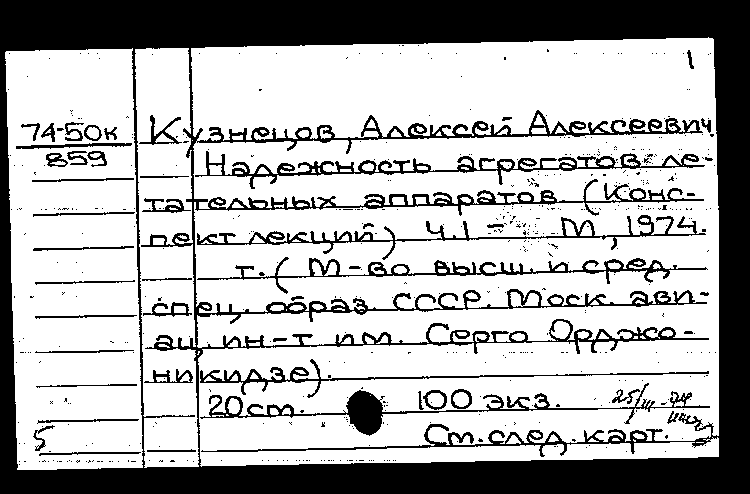 1
74-50к Кузнецов, Алексей Алексеевич
859 Надежность агрегатов ле-
тательных аппаратов (Конс-
пект лекций) Ч.1 - М., 1974.
т. (М-во высш. и сред.
спец. образ. СССР. Моск. ави-
ац. ин-т им. Серго Орджо-
никидзе).
20 см. 100 экз. 25/III-74
5 См. след. карт.